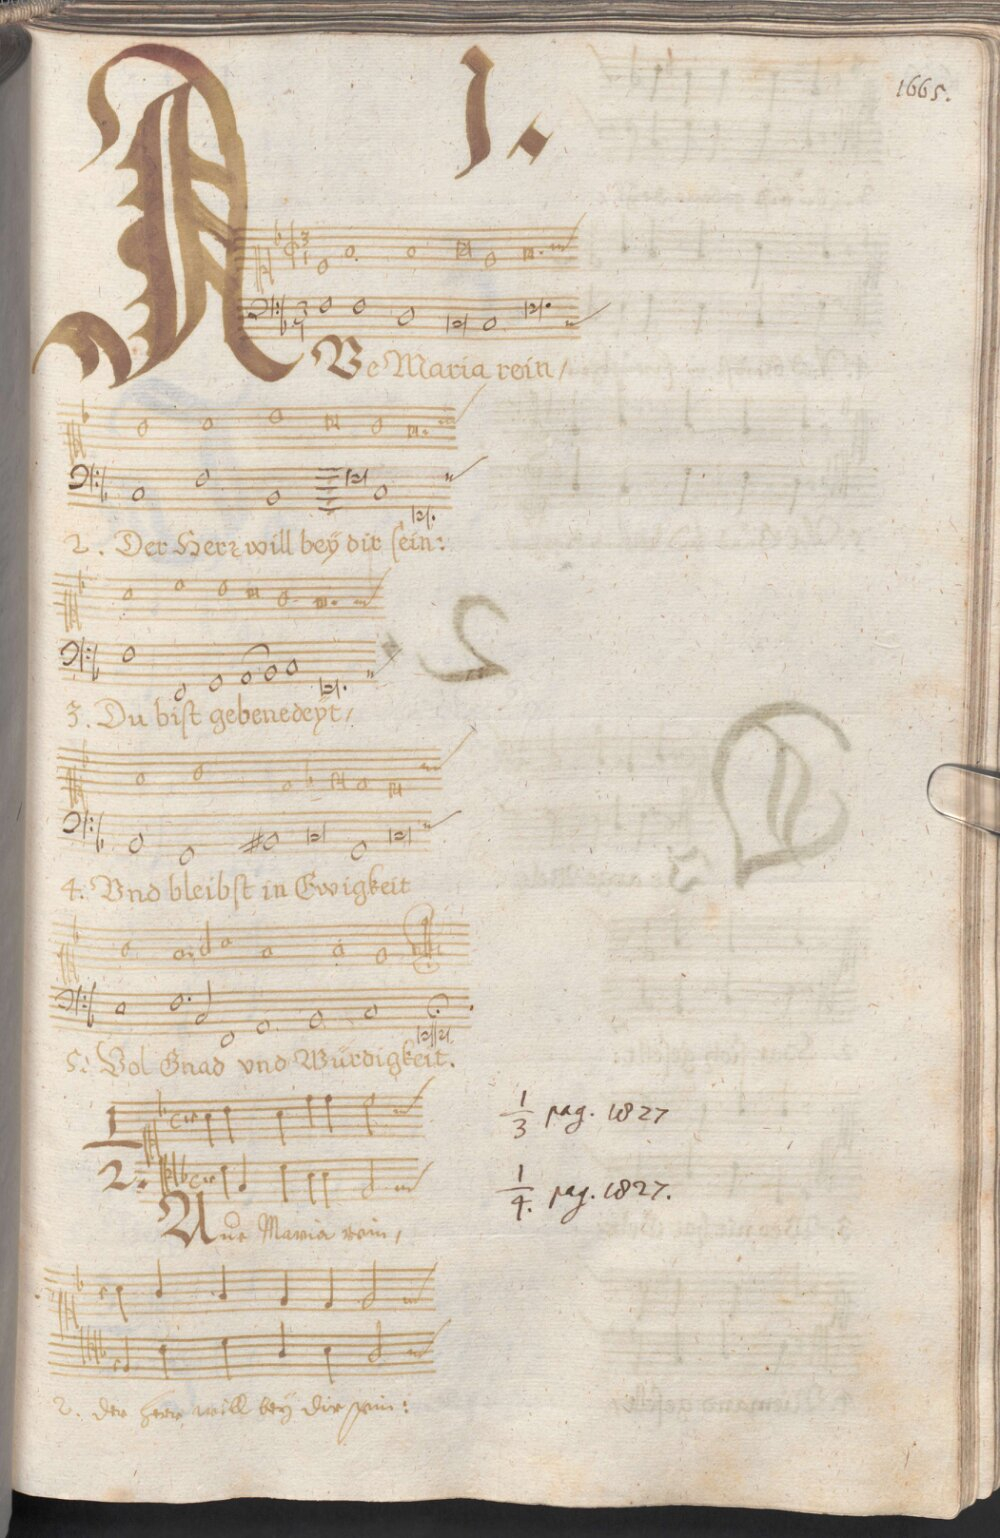 1665.
1.
AVe Maria rein/
2. Der Herz will beÿ dir sein:
3. Du bist gebenedeÿt/
4. Vnd bleibst in Ewigkeit
5. Vol Gnad vnd Würdigkeit.
1
1/3 pag. 1827
2.
1/4. pag. 1827.
Aue Maria rein,
2. der herr will beÿ dir sein: